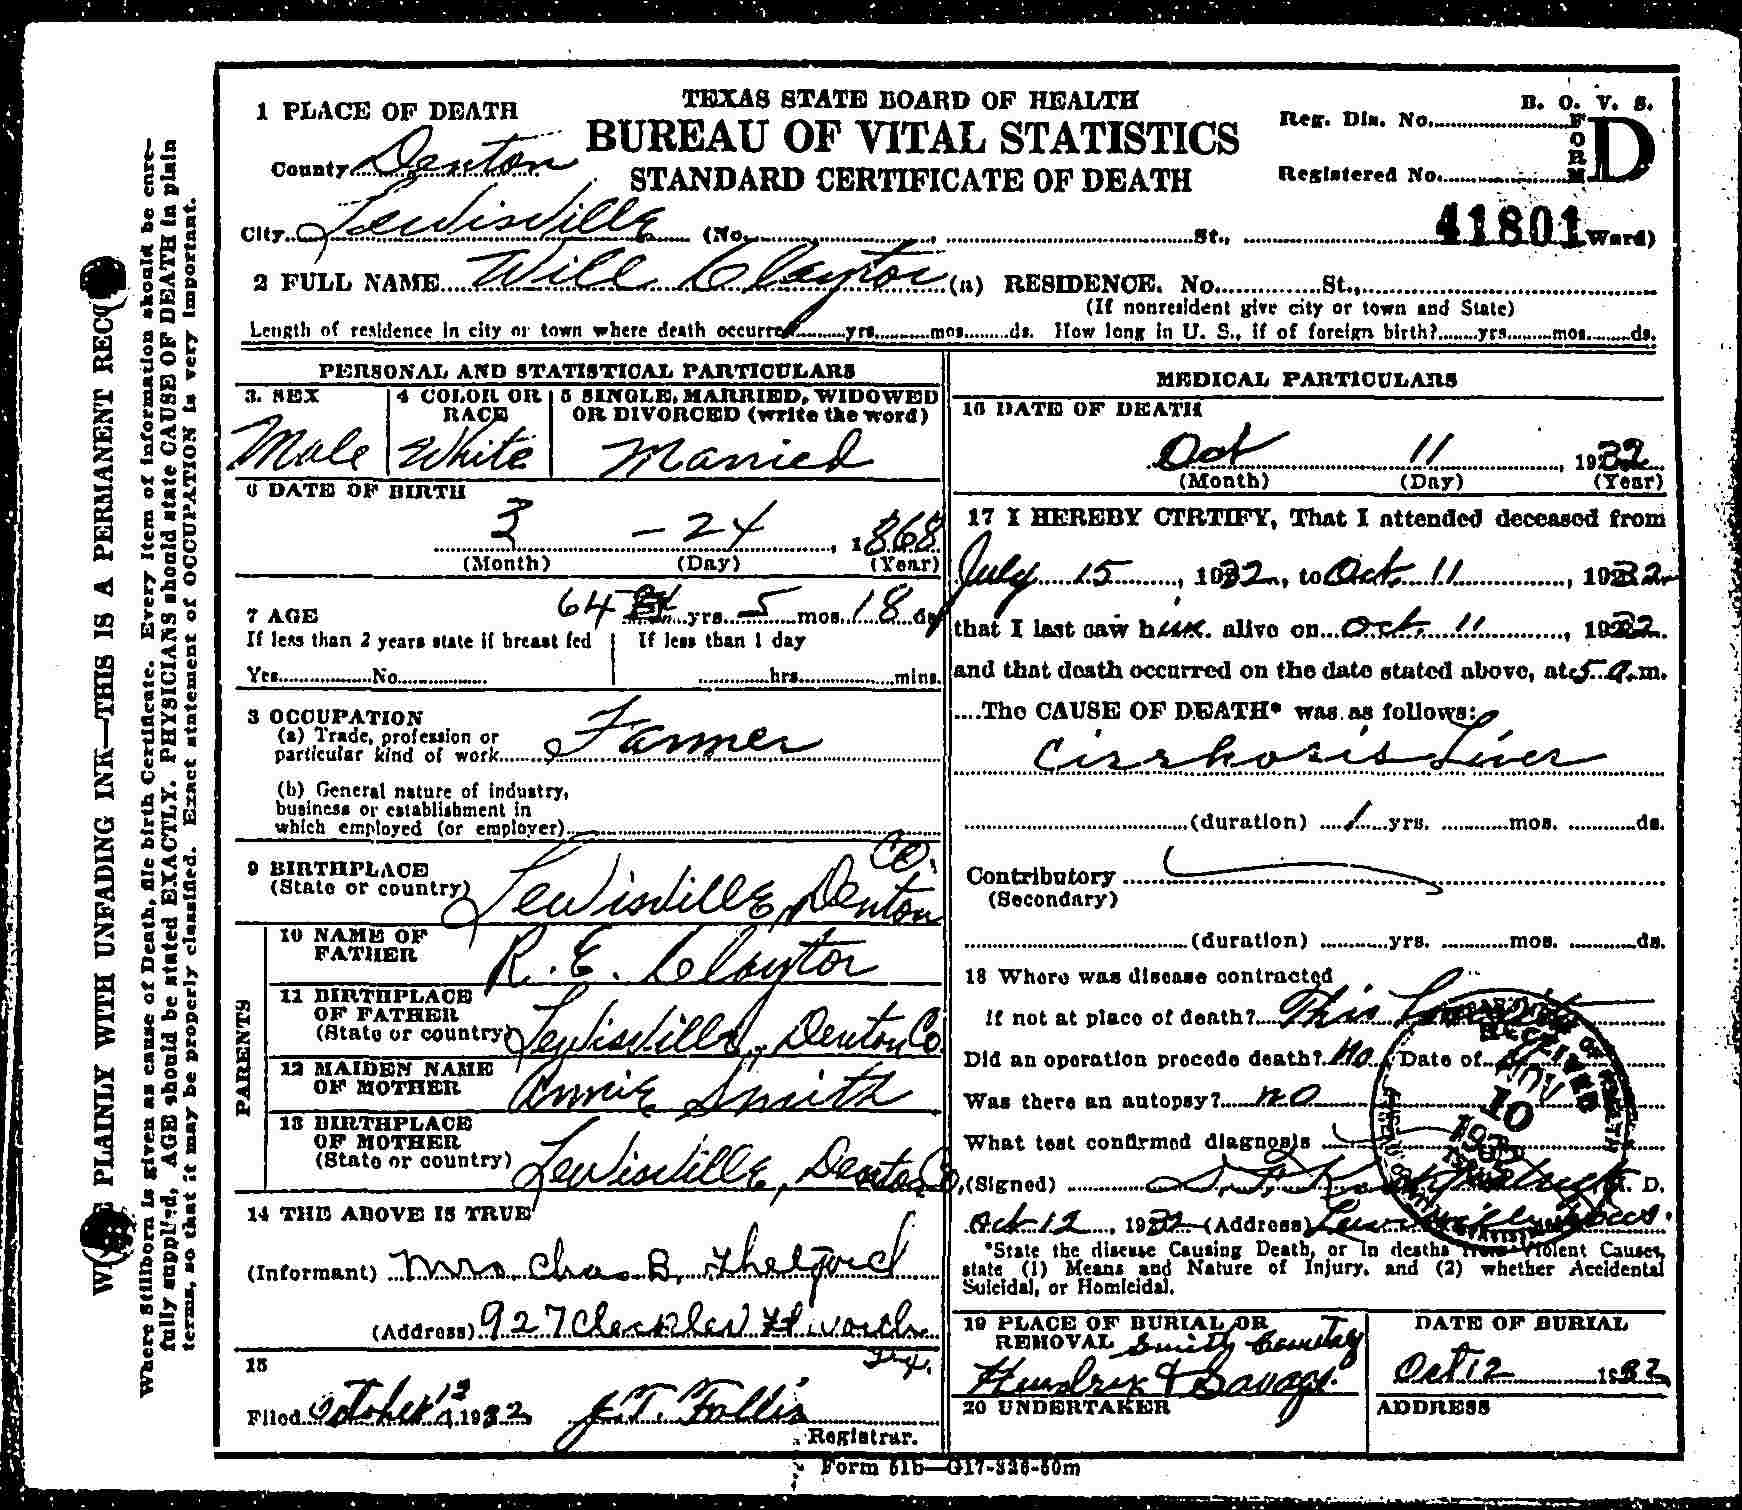 TEXAS STATE BOARD OF HEALTH
BUREAU OF VITAL STATISTICS
STANDARD CERTIFICATE OF DEATH
B. O. V. S.
FORM D
Reg. Dis. No.
Registered No.
41801
1 PLACE OF DEATH
County Denton
City Lewisville (No. , St., Ward)
2 FULL NAME Will Clayton (a) RESIDENCE. No. St.,
(If nonresident give city or town and State)
Length of residence in city or town where death occurred yrs. mos. ds. How long in U. S., if of foreign birth? yrs. mos. ds.
PERSONAL AND STATISTICAL PARTICULARS
3. SEX
Male
4 COLOR OR RACE
White
5 SINGLE, MARRIED, WIDOWED
OR DIVORCED (write the word)
Married
6 DATE OF BIRTH
3 - 24 , 1868
(Month) (Day) (Year)
7 AGE 64 yrs. 5 mos. 18 ds
If less than 2 years state if breast fed
Yes No
If less than 1 day
hrs. mins.
8 OCCUPATION
(a) Trade, profession or
particular kind of work Farmer
(b) General nature of industry,
business or establishment in
which employed (or employer)
9 BIRTHPLACE
(State or country) Lewisville, Denton Co.
PARENTS
10 NAME OF
FATHER R. E. Clayton
11 BIRTHPLACE
OF FATHER
(State or country) Lewisville, Denton Co.
12 MAIDEN NAME
OF MOTHER Annie Smith
13 BIRTHPLACE
OF MOTHER
(State or country) Lewisville, Denton Co.
14 THE ABOVE IS TRUE
(Informant) Mrs Chas B. Thelford
(Address) 927 Ft Worth
Tex.
15
Filed October 12, 1932 J. T. Fallis
Registrar.
MEDICAL PARTICULARS
16 DATE OF DEATH
Oct 11 , 1932
(Month) (Day) (Year)
17 I HEREBY CTRTIFY, That I attended deceased from
July 15 , 1932, to Oct. 11 , 1932
that I last saw him alive on Oct. 11 , 1932.
and that death occurred on the date stated above, at 5 a.m.
The CAUSE OF DEATH* was as follows:
Cirrhosis Liver
(duration) 1 yrs. mos. ds.
Contributory
(Secondary)
(duration) yrs. mos. ds.
18 Where was disease contracted
if not at place of death? This
Did an operation precede death? No. Date of
Was there an autopsy? no
What test confirmed diagnosis
(Signed) M. D.
Oct 12 , 1932 (Address)
*State the disease Causing Death, or in deaths from Violent Causes,
state (1) Means and Nature of Injury, and (2) whether Accidental
Suicidal, or Homicidal.
RECEIVED
NOV
10
19 PLACE OF BURIAL OR
REMOVAL Smith Cemetery
DATE OF BURIAL
Oct 12 1932
Hendrix & Savage
20 UNDERTAKER
ADDRESS
Form 51b—G17-326-50m
WRITE PLAINLY WITH UNFADING INK—THIS IS A PERMANENT RECORD
Where Stillborn is given as cause of Death, file birth Certificate. Every item of information should be care-
fully supplied, AGE should be stated EXACTLY. PHYSICIANS should state CAUSE OF DEATH in plain
terms, so that it may be properly classified. Exact statement of OCCUPATION is very important.